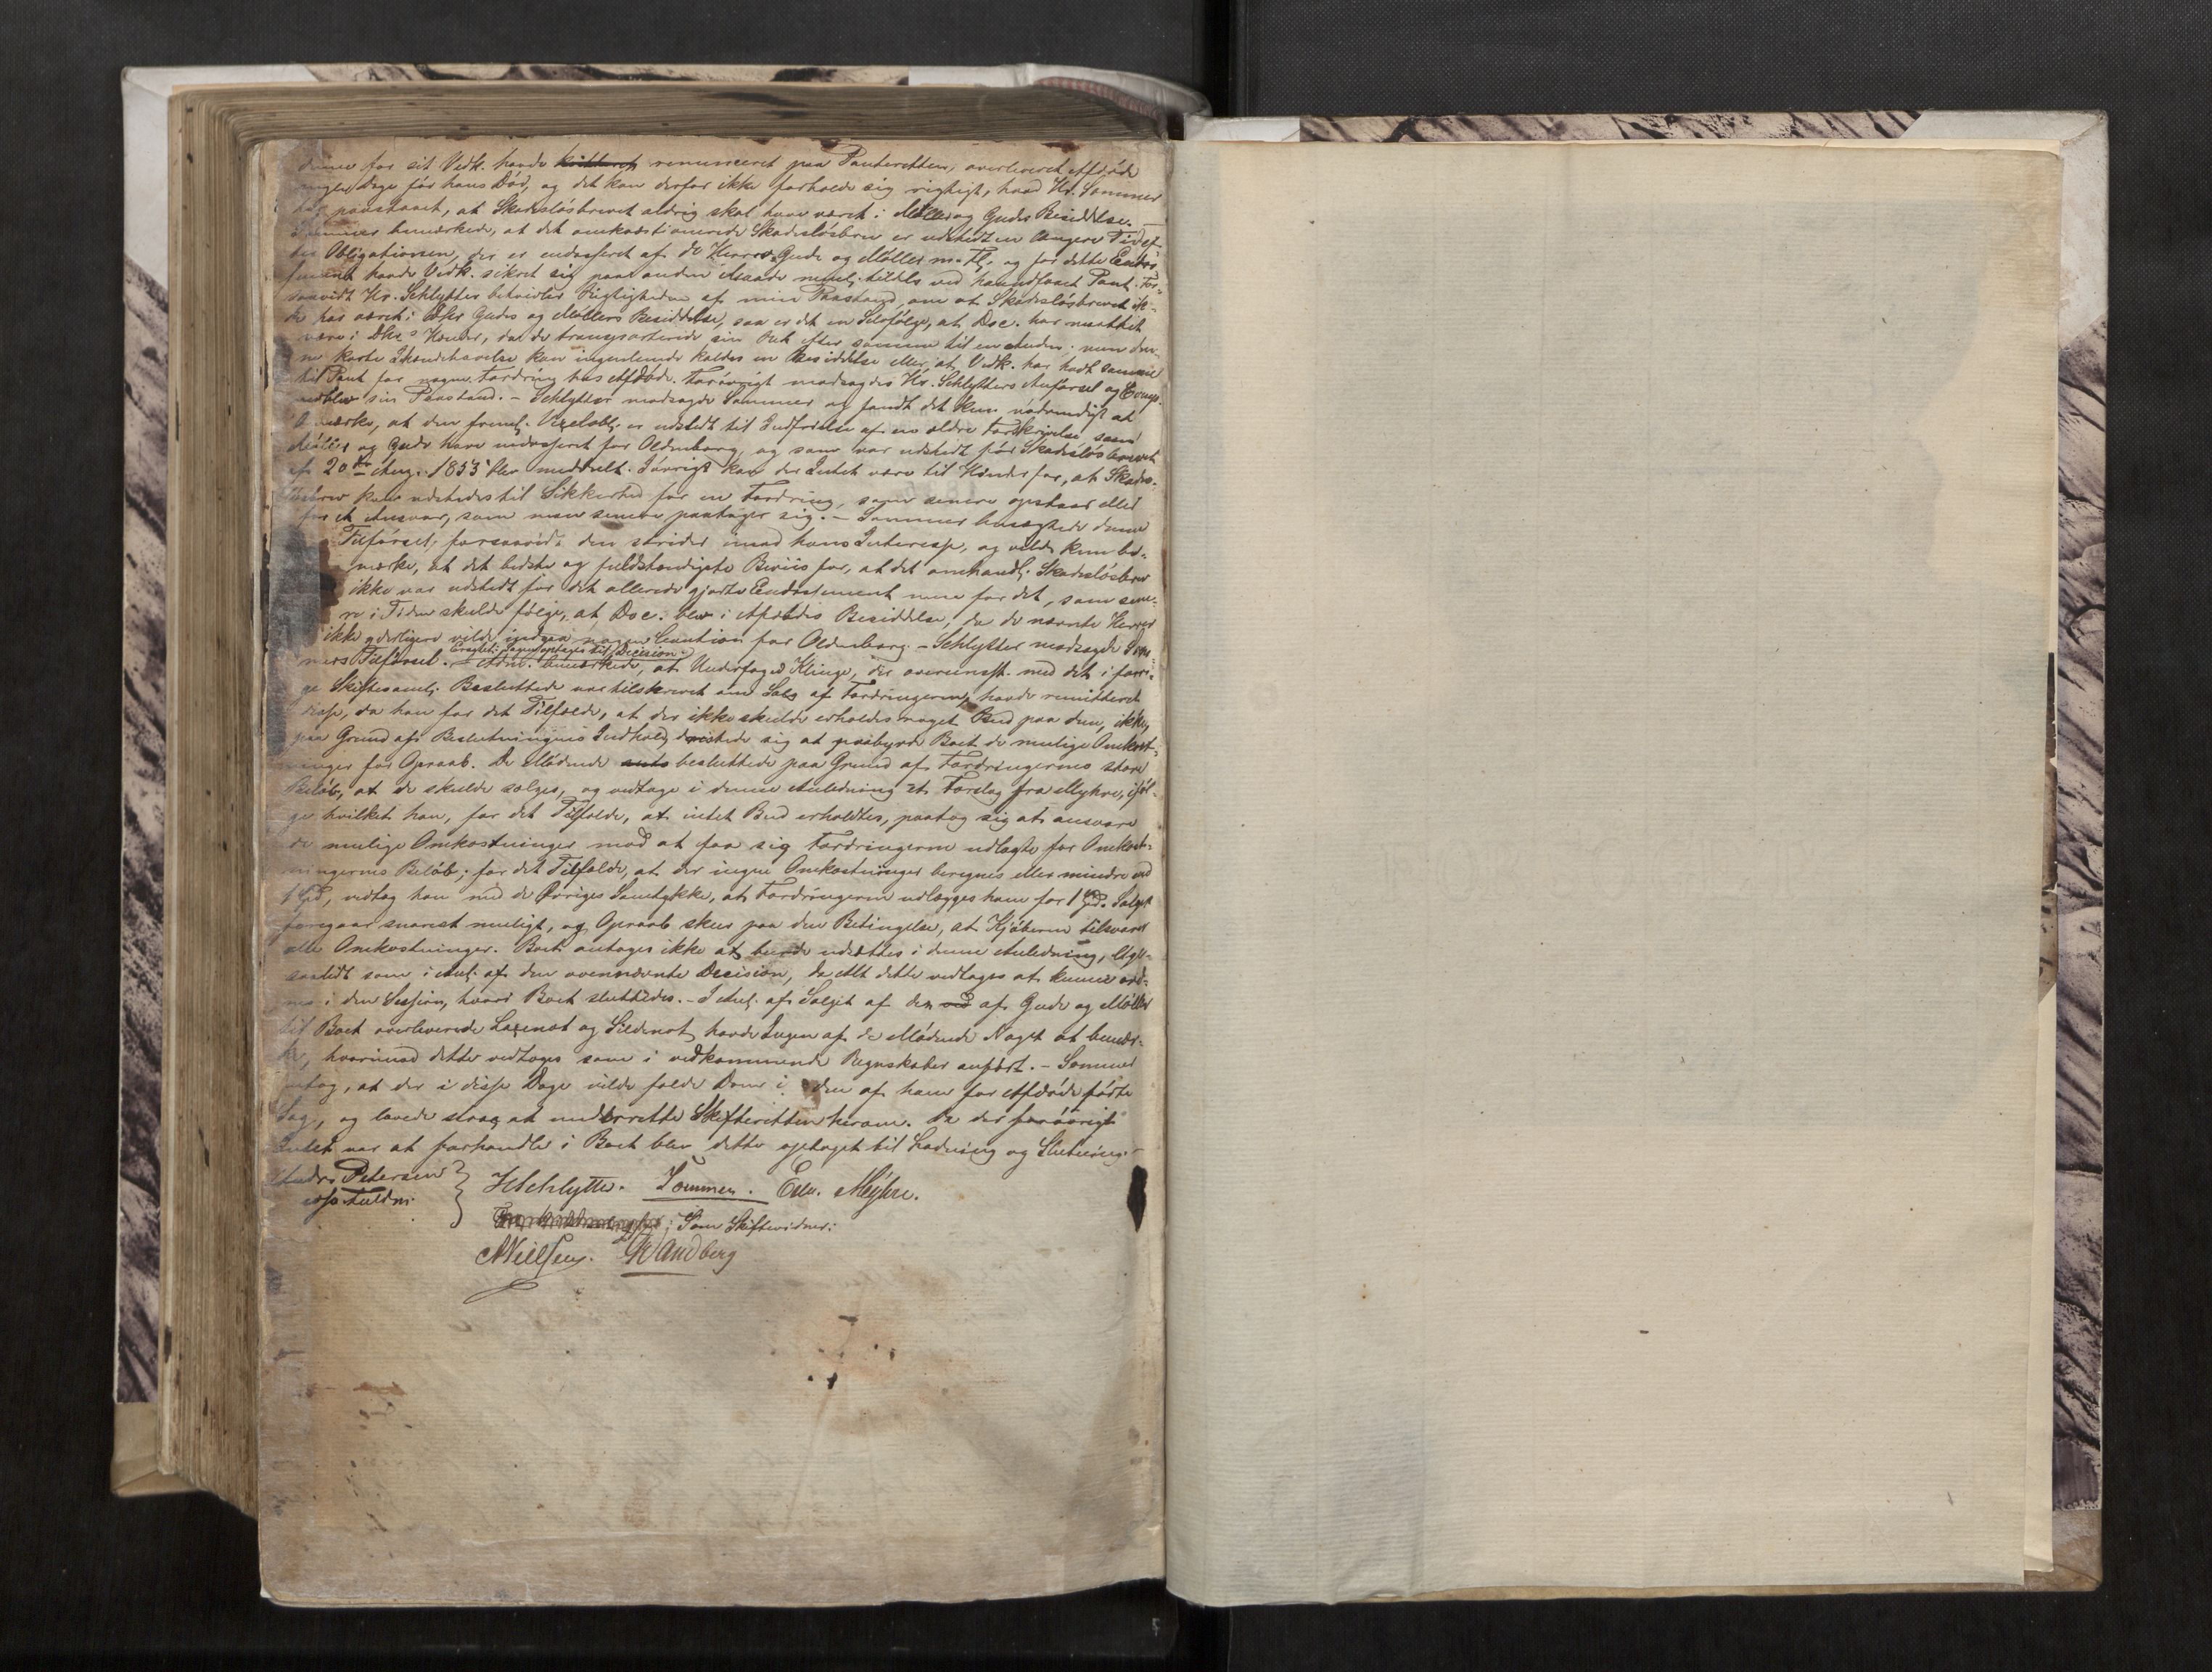 denne for sit Vedk. havde renunceret paa Panteretten, overleveret Afdøde
nogle Dage før hans Død, og det kan derfor ikke forholde sig rigtigt, hvad Hr. Sommer
har paastaaet, at Skadesløsbrevet aldrig skal have været i Møllers og Gudes Besiddelse. –
Sommer bemærkede, at det omkvæstionerede Skadesløsbrev er udstedt en længere Tid ef-
ter Obligationen, der er endosseret af de Herrer Gude og Møller m. Fl. og for dette Endos-
sement havde Vedk. sikret sig paa anden Maade neml. tildels ved haandfaaet Pant. For-
saavidt Hr. Schlytter betvivler Rigtigheden af min Paastand om at Skadesløsbrevet ik-
ke har været i DHrr Gudes og Møllers Besiddelse, saa er det en Selvfølge, at Doc. har maattet
være i Dhrs Hænder, da de transporterede sin Ret efter samme til en Anden; men den-
ne korte Ihændehavelse kan ingenlunde kaldes en Besiddelse eller at Vedk. har havt samme
til Pant for nogen Fordring hos Afdøde. Forøvrigt modsagdes Hr. Schlytters Anførsel og Comp.
vedblev sin Paastand. – Schlytter modsagde Sommer og fandt det kun nødvendigt at
bemærke, at den freml. Vexelobl. er udstedt til Indfrielse af en ældre Forskrivelse, som
Møller og Gude have endosseret for Oldenborg, og som var udstedt før Skadesløsbrevet
af 20de Aug. 1853 blev meddelt. Iøvrigt kan der Intet være til Hinder for, at Skades-
løsbrev kan udstedes til Sikkerhed for en Fordring, som senere opstaar eller
for et Ansvar, som man senere paatager sig. – Sommer benægtede denne
Tilførsel, forsaavidt den strider imod hans Interesse, og vilde kun be-
mærke, at det bedste og fuldstændigste Beviis for, at det omhandl. Skadesløsbrev
ikke var udstedt for det allerede gjorte Endossement men for det, som sene-
re i Tiden skulde følge, at Doc. blev i Afdødes Besiddelse, da de nævnte Herrer
ikke yderligere vilde indgaa nogen Caution for Oldenborg. – Schlytter modsagde Som-
Eragtet: Sagen optages til Decision.
mers Tilførsel. – Adm. bemærkede, at Underfoged Klinge, der overeensst. med det i forri-
ge Skiftesaml. Besluttede var tilskrevet om Salg af Fordringerne, havde remitteret
disse, da han for det Tilfælde, at der ikke skulde erholdes noget Bud paa dem, ikke,
paa Grund af Beslutningens Indhold, dristede sig at paabyrde Boet de mulige Omkost-
ninger for Opraab. De Mødende besluttede paa Grund af Fordringernes store
Beløb, at de skulde sælges, og vedtoge i denne Anledning et Forslag fra Myhre, iføl-
ge hvilket han, for det Tilfælde, at intet Bud erholdtes, paatog sig at ansvare
de mulige Omkostninger mod at faa sig Fordringerne udlagte for Omkost-
ningernes Beløb; for det Tilfælde, at der ingen Omkostninger beregnes eller mindre end
1 Spd, vedtog han med de Øvriges Samtykke, at Fordringerne udlægges ham for 1 Spd. Salget
foregaar snarest muligt, og Opraab skeer paa den Betingelse, at Kjøberen tilsvarer
alle Omkostninger. Boet antages ikke at burde udsættes i denne Anledning, lige-
saalidt som i Anl. af den ovennævnte Decision, da Alt dette vedtages at kunne ord-
nes i den Session, hvori Boet sluttedes. – I Anl. af Salget af den af Gude og Møller
til Boet overleverede Laxenot og Sildenot havde Ingen af de Mødende Noget at bemær-
ke, hvorimod dette vedtoges som i vedkommende Regnskaber anført. – Sommer
antog, at der i disse Dage vilde falde Dom i den af ham for Afdøde førte
Sag, og lovede strax at underrette Skifteretten herom. Da der forøvrigt
Intet var at forhandle i Boet blev dette optaget til Lodning og Slutning.
Andr. Petersen
HSchlytter. Sommer. Edv. Myhre.
Som Skiftevidner:
ANielsen. Wandberg